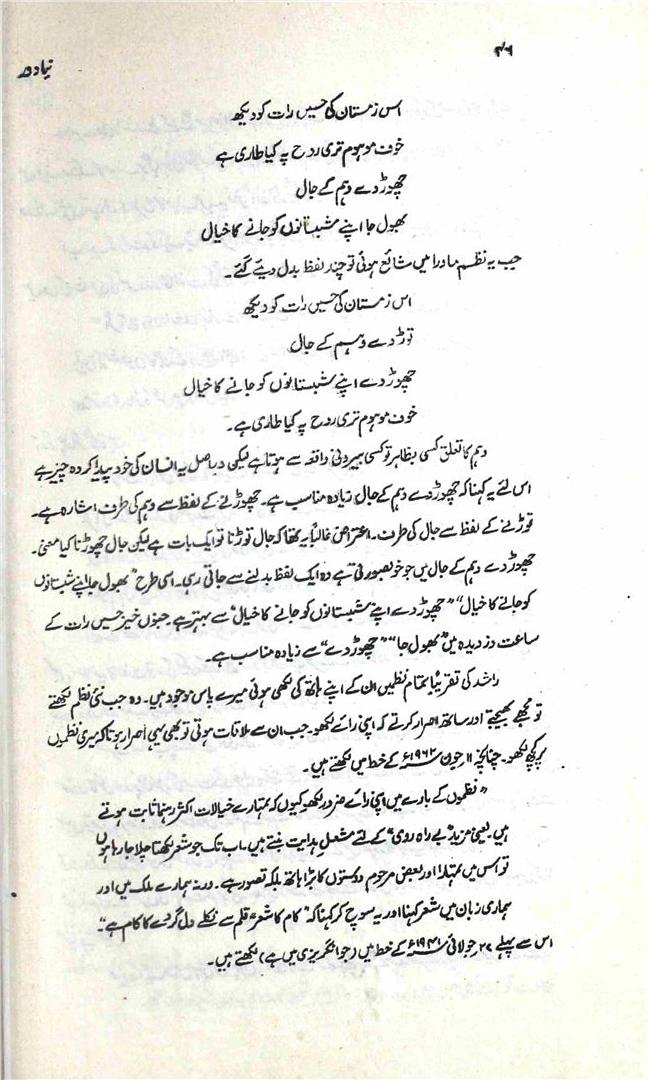 ۴۶
نیا دور
اس زمستان کی حسیں رات کو دیکھ
خوف موہوم تری روح پہ کیا طاری ہے
چھوڑ دے وہم کے جال
بھول جا اپنے شبستانوں کو جانے کا خیال
جب یہ نظم ماورا میں شائع ہوئی تو چند لفظ بدل دیئے گئے۔
اس زمستان کی حسیں رات کو دیکھ
توڑ دے وہم کے جال
چھوڑ دے اپنے شبستانوں کو جانے کا خیال
خوف موہوم تری روح پہ کیا طاری ہے۔
وہم کا تعلق کسی بظاہر تو کسی بیرونی واقعہ سے ہوتا ہے لیکن دراصل یہ انسان کی خود پیدا کردہ چیز ہے
اس لئے یہ کہنا کہ چھوڑ دے وہم کے جال زیادہ مناسب ہے۔ چھوڑنے کے لفظ سے وہم کی طرف اشارہ ہے۔
توڑنے کے لفظ سے جال کی طرف۔ اعتراض غالباً یہ تھا کہ جال توڑنا تو ایک بات ہے لیکن جال چھوڑنا کیا معنی۔
چھوڑ دے وہم کے جال میں جو خوبصورتی ہے وہ ایک لفظ بدلنے سے جاتی رہی۔ اسی طرح "بھول جا اپنے شبستانوں
کو جانے کا خیال" "چھوڑ دے اپنے شبستانوں کو جانے کا خیال" سے بہتر ہے جنوں خیز حسیں رات کے
ساعت دزدیدہ میں "بھول جا" "چھوڑ دے" سے زیادہ مناسب ہے۔
راشد کی تقریباً تمام نظمیں ان کے اپنے ہاتھ کی لکھی ہوئی میرے پاس موجود ہیں۔ وہ جب نئی نظم لکھتے
تو مجھے بھیجتے اور ساتھ اصرار کرتے کہ اپنی رائے لکھو۔ جب ان سے ملاقات ہوتی تو بھی یہی اصرار ہوتا کہ میری نظموں
پر کچھ لکھو۔ چنانچہ ۱۱ جون ۱۹۶۲ء کے خط میں لکھتے ہیں۔
"نظموں کے بارے میں اپنی رائے ضرور لکھو کیوں کہ تمہارے خیالات اکثر رہنما ثابت ہوتے
ہیں یعنی مزید "بے راہ روی" کے لئے مشعلِ ہدایت بنتے ہیں۔ اب تک جو شعر لکھتا چلا جا رہا ہوں
تو اس میں تمہارا اور بعض مرحوم دوستوں کا بڑا ہاتھ بلکہ تصور ہے۔ ورنہ ہمارے ملک میں اور
ہماری زبان میں شعر کہنا اور یہ سوچ کر کہنا کہ "کام کا شعر" قلم سے نکلے دل گردے کا کام ہے"۔
اس سے پہلے ۲۲ جولائی ۱۹۴۱ء کے خط میں (جو انگریزی میں ہے) لکھتے ہیں۔